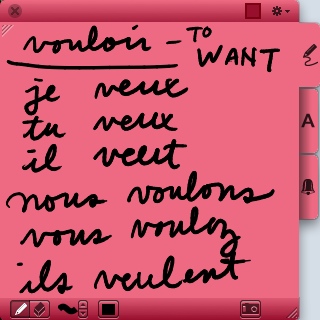 vouloir - TO WANT
je veux
tu veux
il veut
nous voulons
vous voulez
ils veulent
A